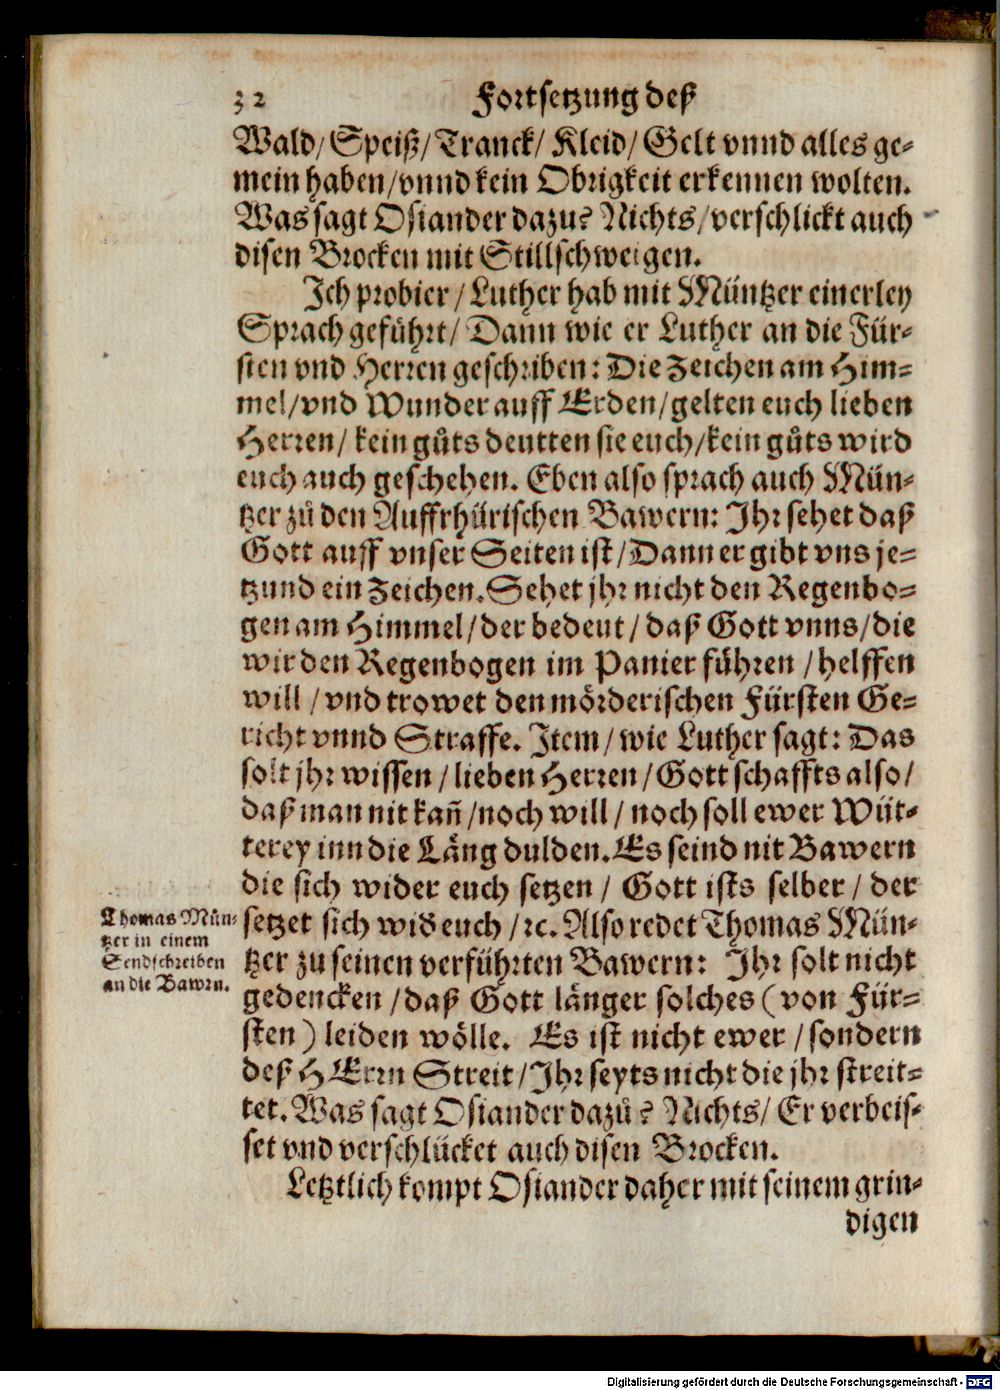 32 Fortsetzung deß
Wald/ Speiß/ Tranck/ Kleid/ Gelt vnnd alles ge-
mein haben/vnnd kein Obrigkeit erkennen wolten.
Was sagt Osiander dazu? Nichts/verschlickt auch
disen Brocken mit Stillschweigen.
Ich probier/ Luther hab mit Müntzer einerley
Sprach geführt/ Dann wie er Luther an die Für-
sten vnd Herren geschriben: Die Zeichen am Him-
mel/vnd Wunder auff Erden/gelten euch lieben
Herren/ kein gůts deutten sie euch/kein gůts wird
euch auch geschehen. Eben also sprach auch Mün-
tzer zů den Auffrhürischen Bawern: Ihr sehet daß
Gott auff vnser Seiten ist/Dann er gibt vns je-
tzund ein Zeichen. Sehet jhr nicht den Regenbo-
gen am Himmel/der bedeut/ daß Gott vnns/die
wir den Regenbogen im Panier führen/helffen
will/vnd trowet den mörderischen Fürsten Ge-
richt vnnd Straffe. Item/ wie Luther sagt: Das
solt jhr wissen/lieben Herren/Gott schaffts also/
daß man nit kañ/noch will/ noch soll ewer Wüt-
terey inn die Läng dulden. Es seind nit Bawern
die sich wider euch setzen/ Gott ists selber/ der
setzet sich wid euch/ ꝛc. Also redet Thomas Mün-
tzer zu seinen verführten Bawern: Ihr solt nicht
gedencken/daß Gott länger solches (von Für-
sten) leiden wölle. Es ist nicht ewer/sondern
deß HErrn Streit/Ihr seyts nicht die jhr streit-
tet. Was sagt Osiander dazů? Nichts/ Er verbeis-
set vnd verschlücket auch disen Brocken.
Letztlich kompt Osiander daher mit seinem grin-
digen
Thomas Mün-
tzer in einem
Sendschreiben
an die Bawrn.
Digitalisierung gefördert durch die Deutsche Forschungsgemeinschaft - DFG